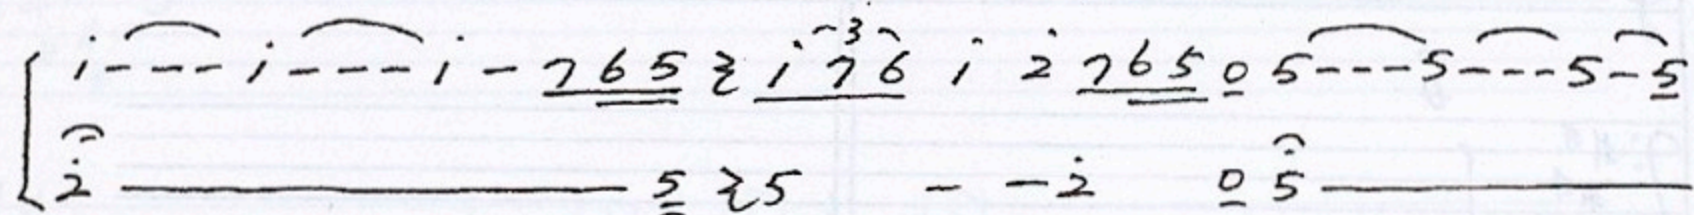 i---i---i-765 ξ i 3 7 6 i 2̇ 765 0 5---5---5-5
2̇ ———— 5 ξ 5 - - 2̇ 0 5 ————